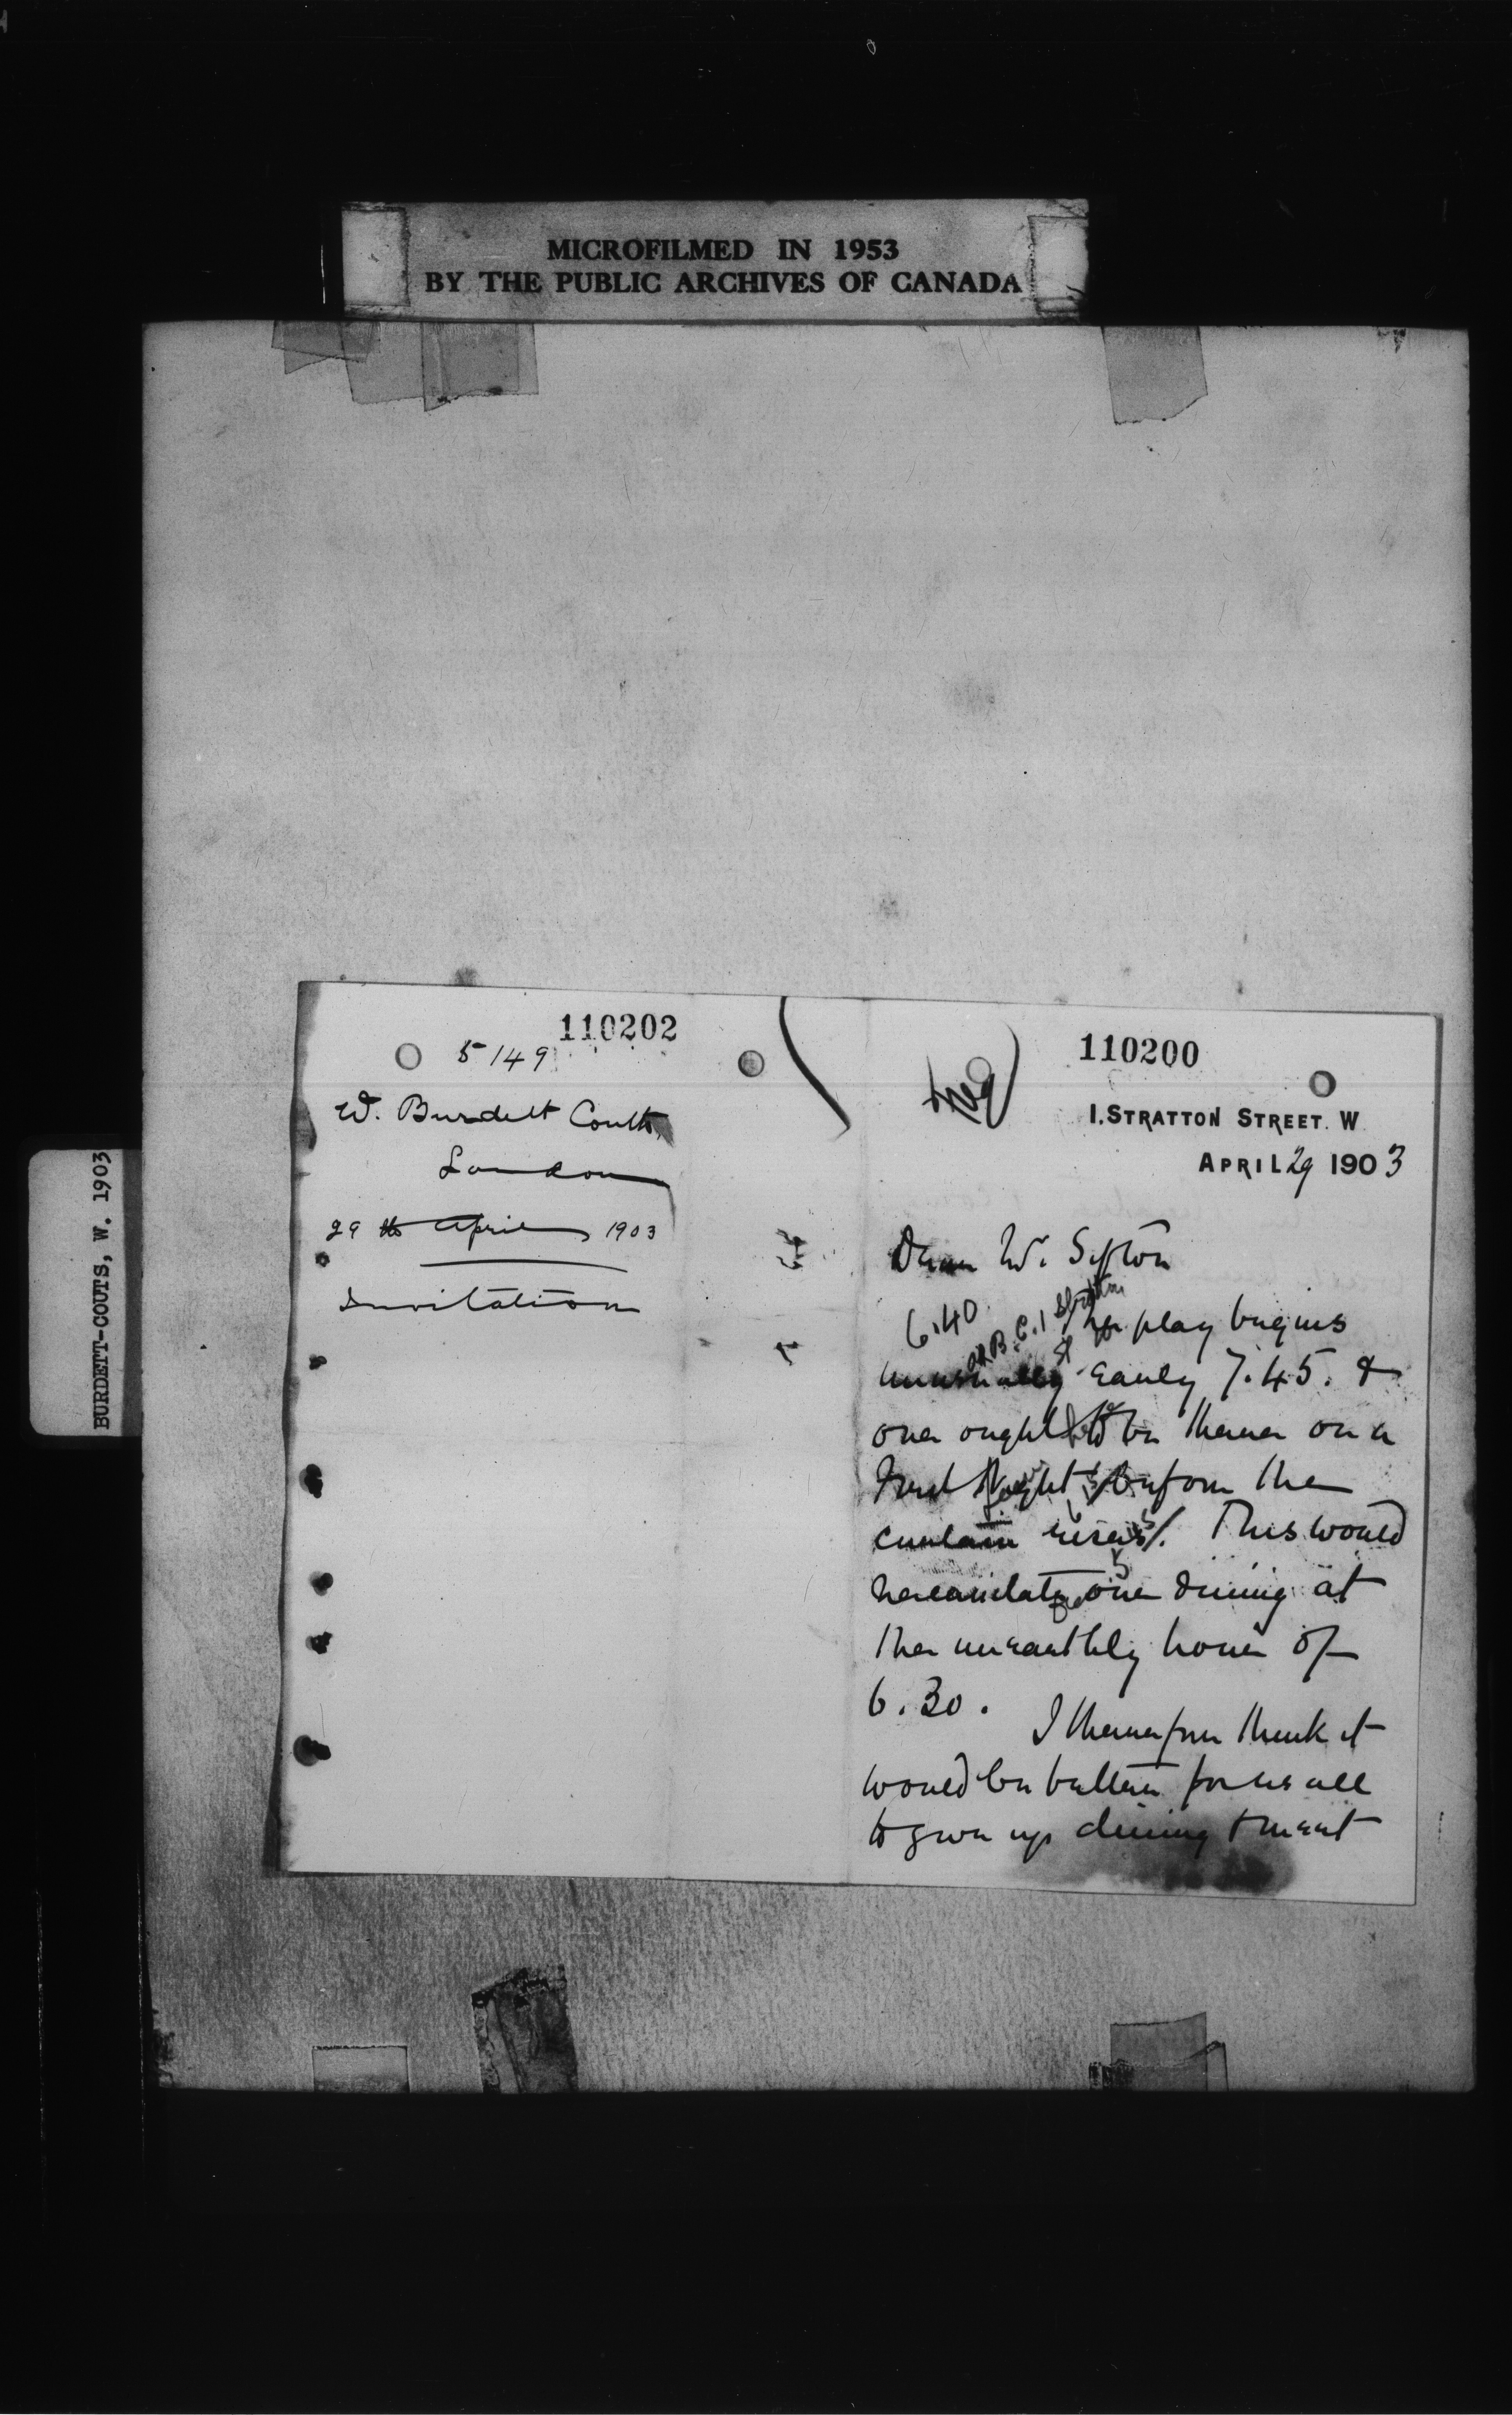 MICROFILMED IN 1953
BY THE PUBLIC ARCHIVES OF CANADA
BURDETT-COUTS, W. 1903
110202
5149
W. Burdett Coutts,
London
29th April 1903
Invitation
110200
1. STRATTON STREET. W
APRIL 29 1903
Dear Mr. Sifton
6.40
The play begins
unusually early 7.45. &
one ought to be there on a
First Night before the
curtain rises. This would
necessitate our dining at
the unearthly hour of
6.30.
I therefore think it
would be better for us all
to give up dining & meet